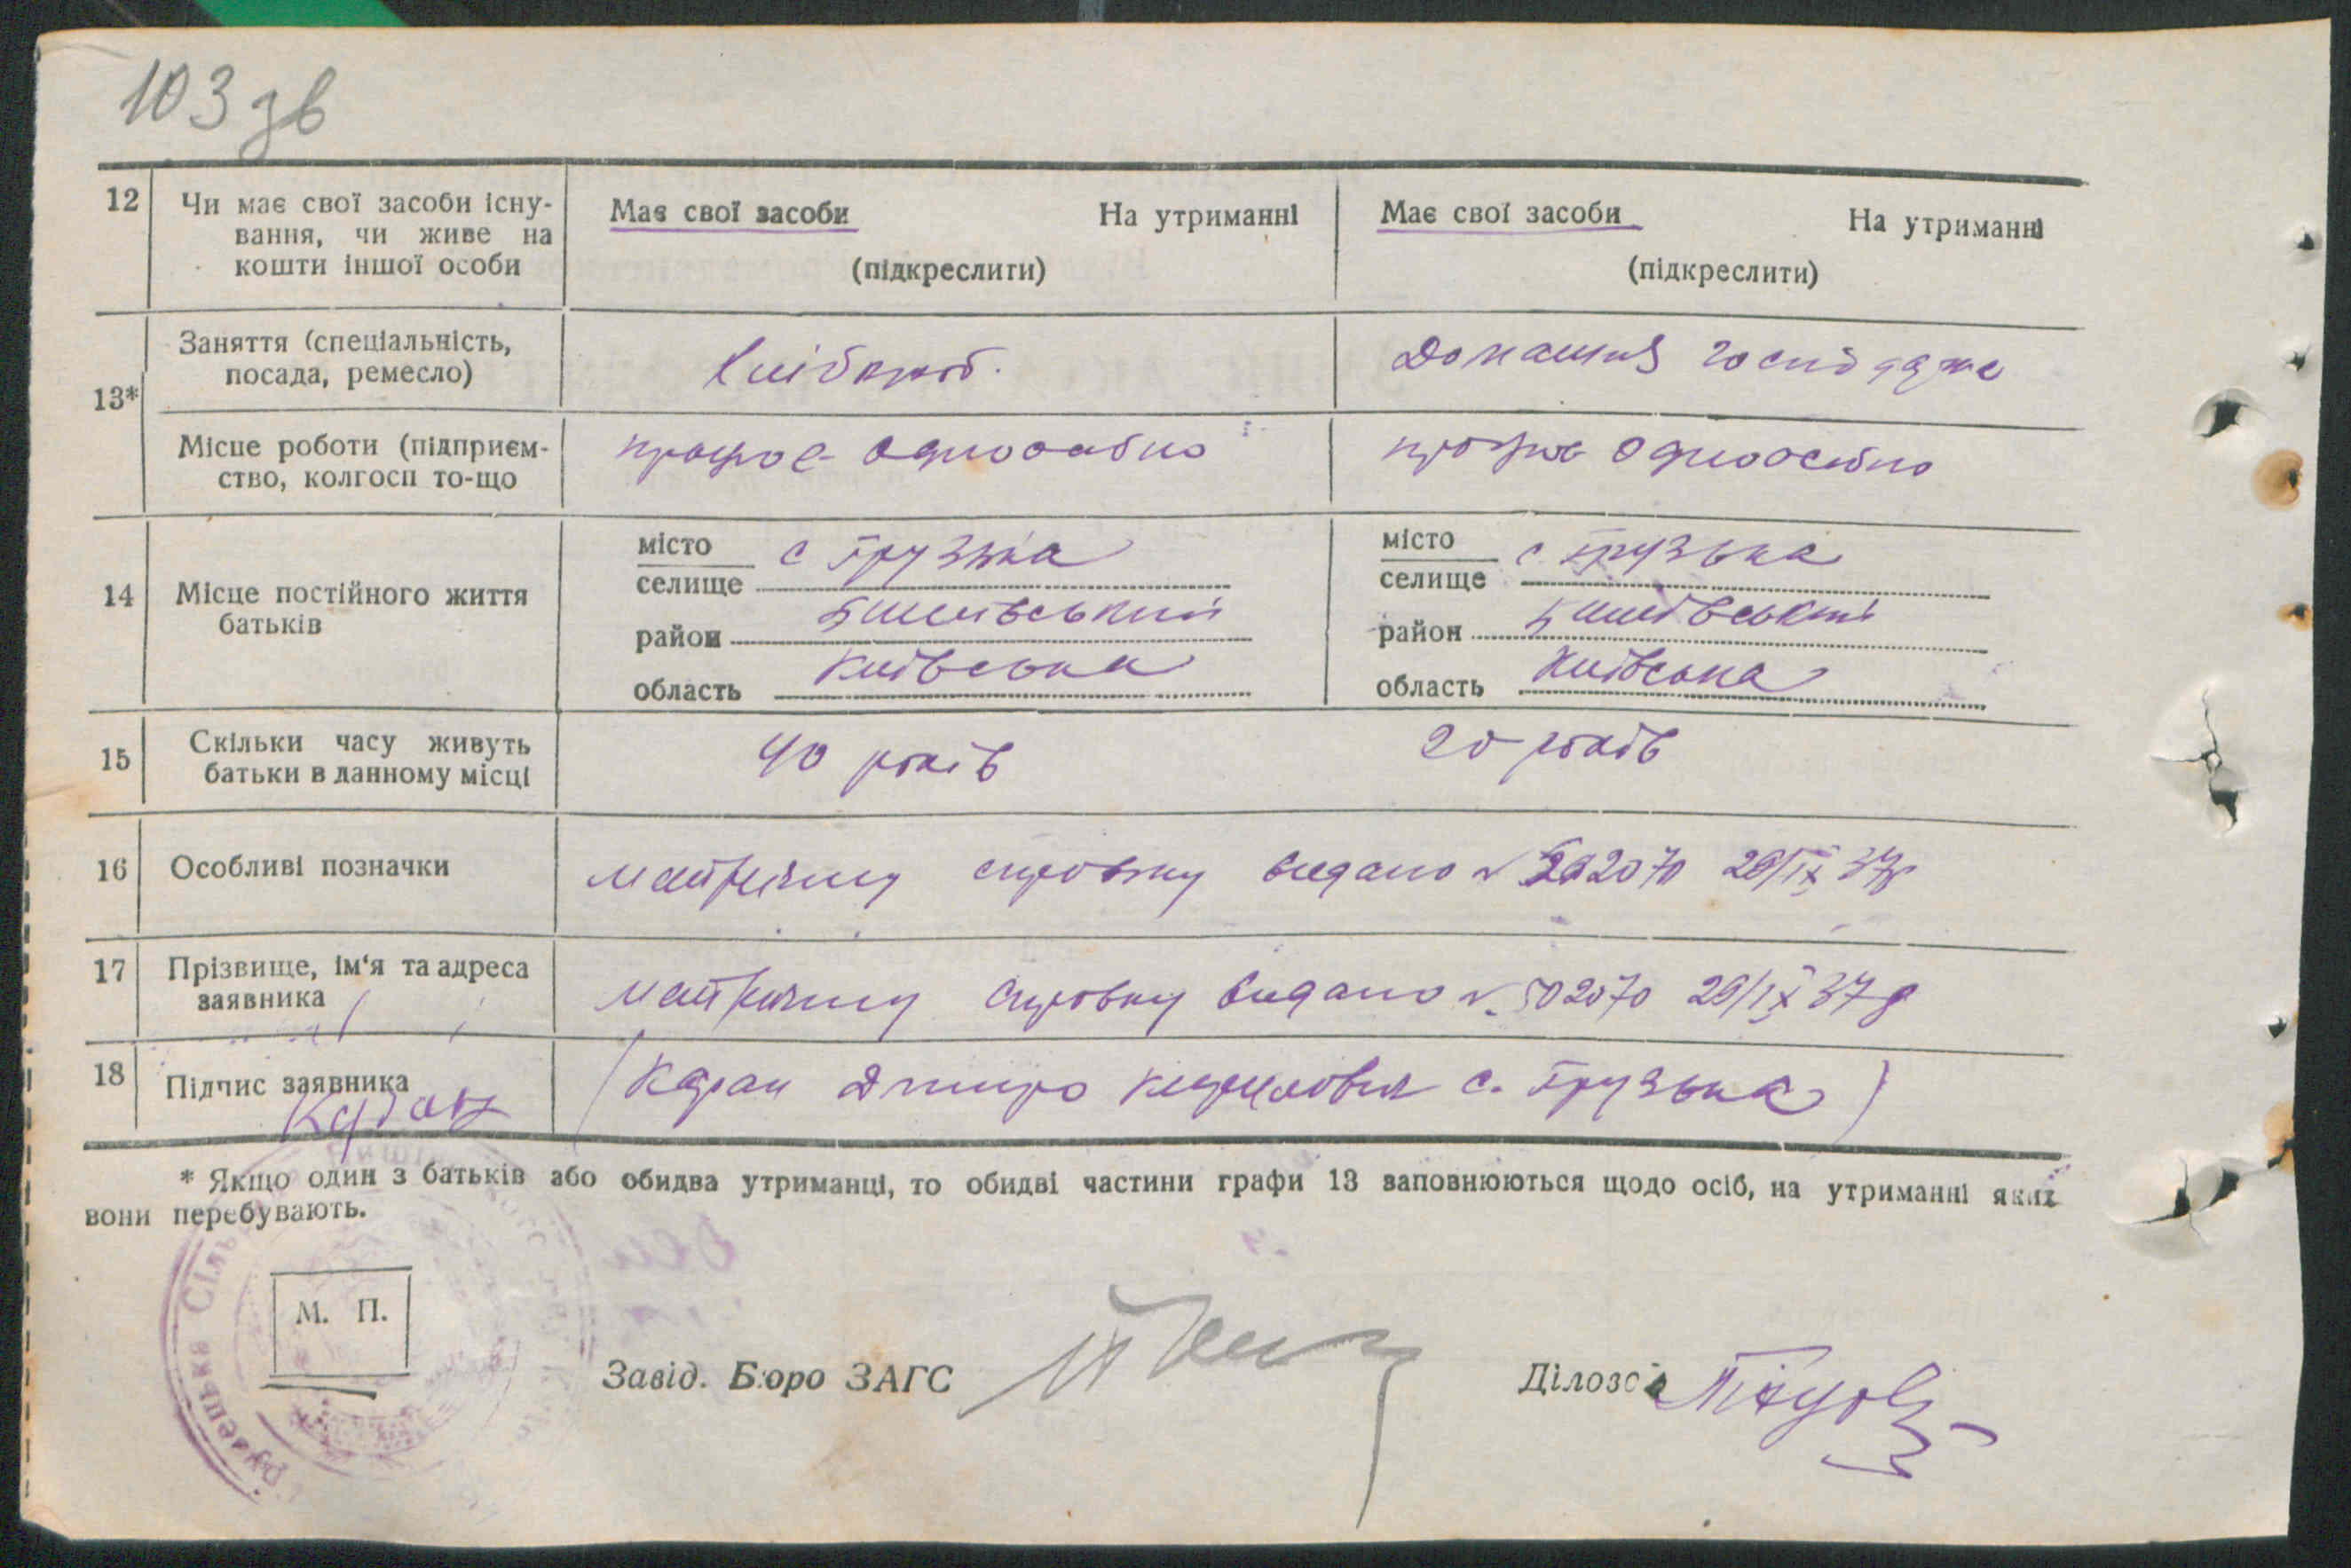 103 зв
12 Чи має свої засоби існу- Має свої засоби На утриманні Має свої засоби На утриманні
вання, чи живе на
кошти іншої особи (підкреслити) (підкреслити)
13* Заняття (спеціальність,
посада, ремесло) Хлібороб. Домашнє
Місце роботи (підприєм- працює одноосібно працює одноосібно
ство, колгосп то-що
14 Місце постійного життя
батьків
місто с Грузька місто с. Грузька
селище селище
район Бишівський район Бишівський
область Київська область Київська
15 Скільки часу живуть 40 років 20 років
батьки в данному місці
16 Особливі позначки справку видано № 2070 29/IX 37р
17 Прізвище, ім'я та адреса
заявника справку видано № 502070 29/IX 37р
18 Підпис заявника (Дмитро Кирилович с. Грузька)
* Якщо один з батьків або обидва утриманці, то обидві частини графи 13 заповнюються щодо осіб, на утриманні яких
вони перебувають.
М. П.
Завід. Бюро ЗАГС Ділово